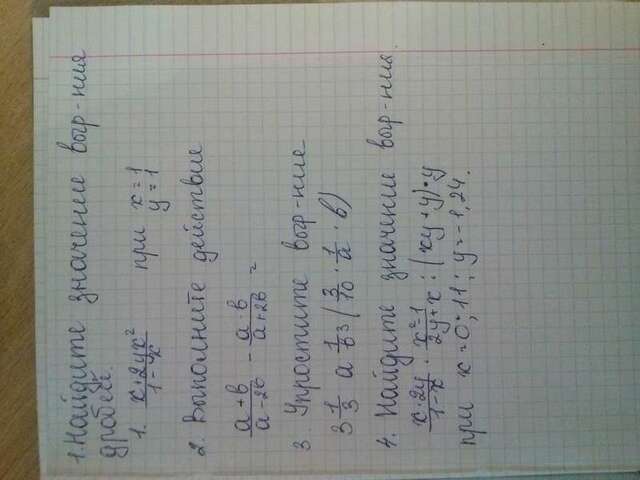 1. Найдите значение выр-ния
дробей.
1. x+2yx²/1-x при x=1
y=1
2. Выполните действие
a+b/a-2b - a-b/a+2b =
3. Упростите выр-ние
3 1/3 a 1/b³ : (3/10 · 1/a · b)
4. Найдите значение выр-ния
x·2y/1-x · x²-1/2y+x : (xy+y)·y
при x=0,11; y=-1,24.